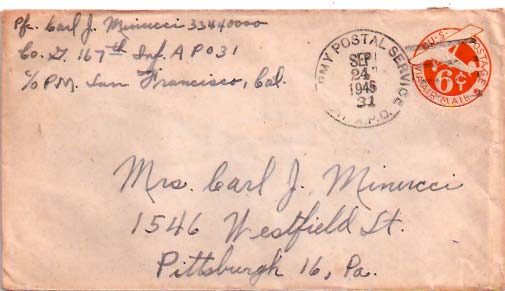 Pfc. Carl J. Minucci 33440000
Co. G. 167th Inf. APO 31
c/o P.M. San Francisco, Cal.
ARMY POSTAL SERVICE
SEP
24
1945
31
A.P.O.
U.S. POSTAGE
6¢
VIA AIR MAIL
Mrs. Carl J. Minucci
1546 Westfield St.
Pittsburgh 16, Pa.